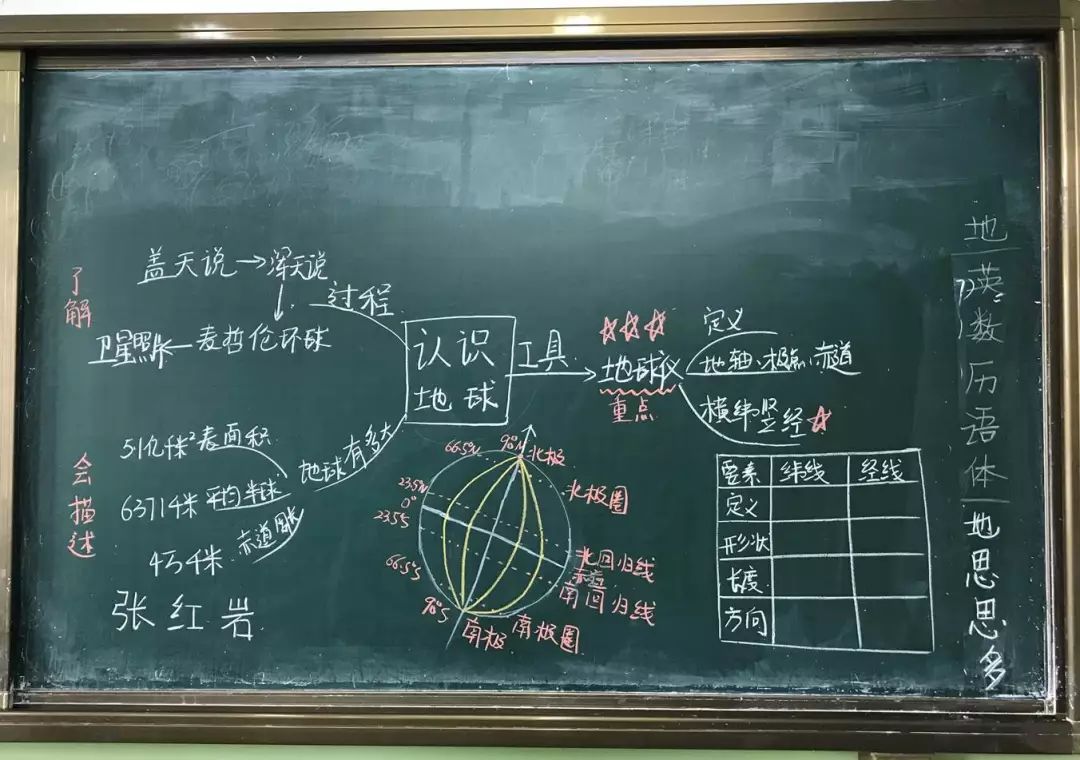 了解
盖天说→浑天说
过程
卫星照片←麦哲伦环球
认识
地球
工具
☆☆☆
地球仪
重点
定义
地轴、极点、赤道
横纬竖经☆
会描述
地球有多大
5.1亿千米²表面积
6371千米平均半径
4万千米
赤道周长
张红岩
90°N
北极
66.5°N
北极圈
23.5°N
0°
23.5°S
北回归线
赤道
南回归线
66.5°S
90°S
南极
南极圈
要素 纬线 经线
定义
形状
长度
方向
地
英
数
历
语
体
地
思
思
多